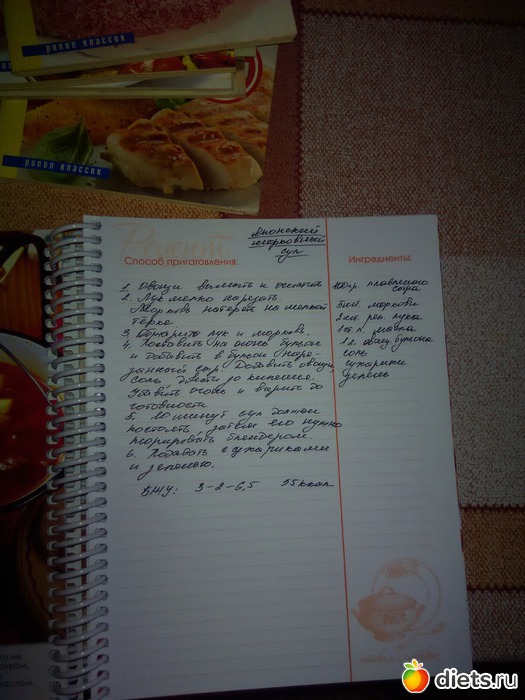 рипол классик
рипол классик
Рецепт
Японский
морковный
суп
Способ приготовления:
1. Овощи вымыть и очистить
2. Лук мелко нарезать
Морковь натереть на мелкой
терке.
3. Обжарить лук и морковь.
4. Поставить на огонь бульон
и добавить в бульон наре-
занный сыр. Добавить овощи,
соль, довести до кипения.
Убавить огонь и варить до
готовности.
5. 10 минут суп должен
постоять, затем его нужно
пюрировать блендером.
6. Подавать с сухариками
и зеленью.
БЖУ: 3-2-6,5 55 ккал
Ингредиенты:
100гр. плавленого
сыра
5шт. моркови
2шт. реп. лука
1ст. л. масла
1 л. овощ. бульона
соль
сухарики
зелень
diets.ru